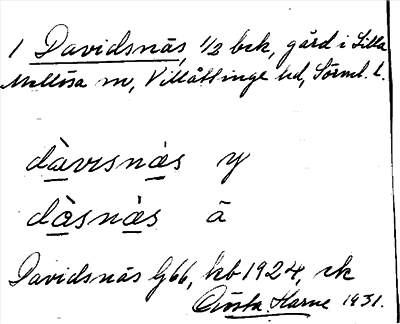 1 Davidsnäs, 1/2 bck, gård i Lilla
Mellösa sn, Villåttinge hd, Sörml. l.
dàvισnàs y
dàsnàs ä
Davidsnäs G66, kb 1924, ek
Gösta Harne 1931.